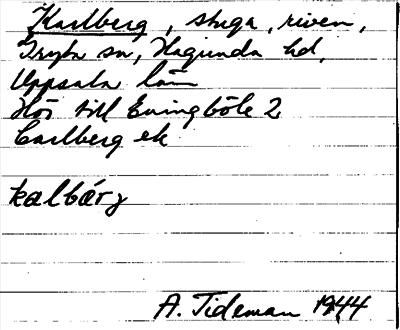 Karlberg, stuga, riven,
Gryta sn, Hagunda hd,
Uppsala län
Hör till Evingböle 2
Carlberg ek
kalbärj
A. Tideman 1944